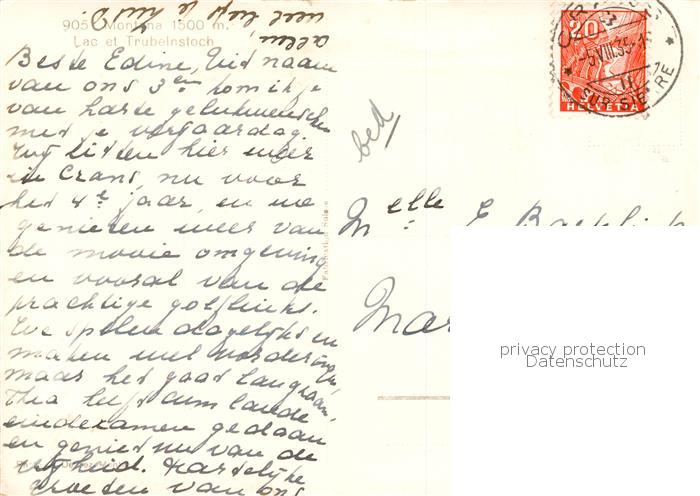 905 Montana 1500 m.
Lac et Trubelnstoch
allen
met liefs
Beste Edine, Uit naam
van ons 3en kom ik je
van harte gelukwenschen
met je verjaardag.
Wij zitten hier weer
in Crans, nu voor
het 4e jaar, en we
genieten weer van
de mooie omgeving
en vooral van de
prachtige golflinks.
We spelen dagelijks en
maken wel vorderingen,
maar het gaat langzaam,
Thea heeft cum laude
eindexamen gedaan
en geniet nu van de
vrijheid. Hartelijke
groeten van ons
Fabrication Suisse
20
HELVETIA
-5.VIII.35-
SUR SIERRE
bed
Melle E.
Mar
privacy protection
Datenschutz